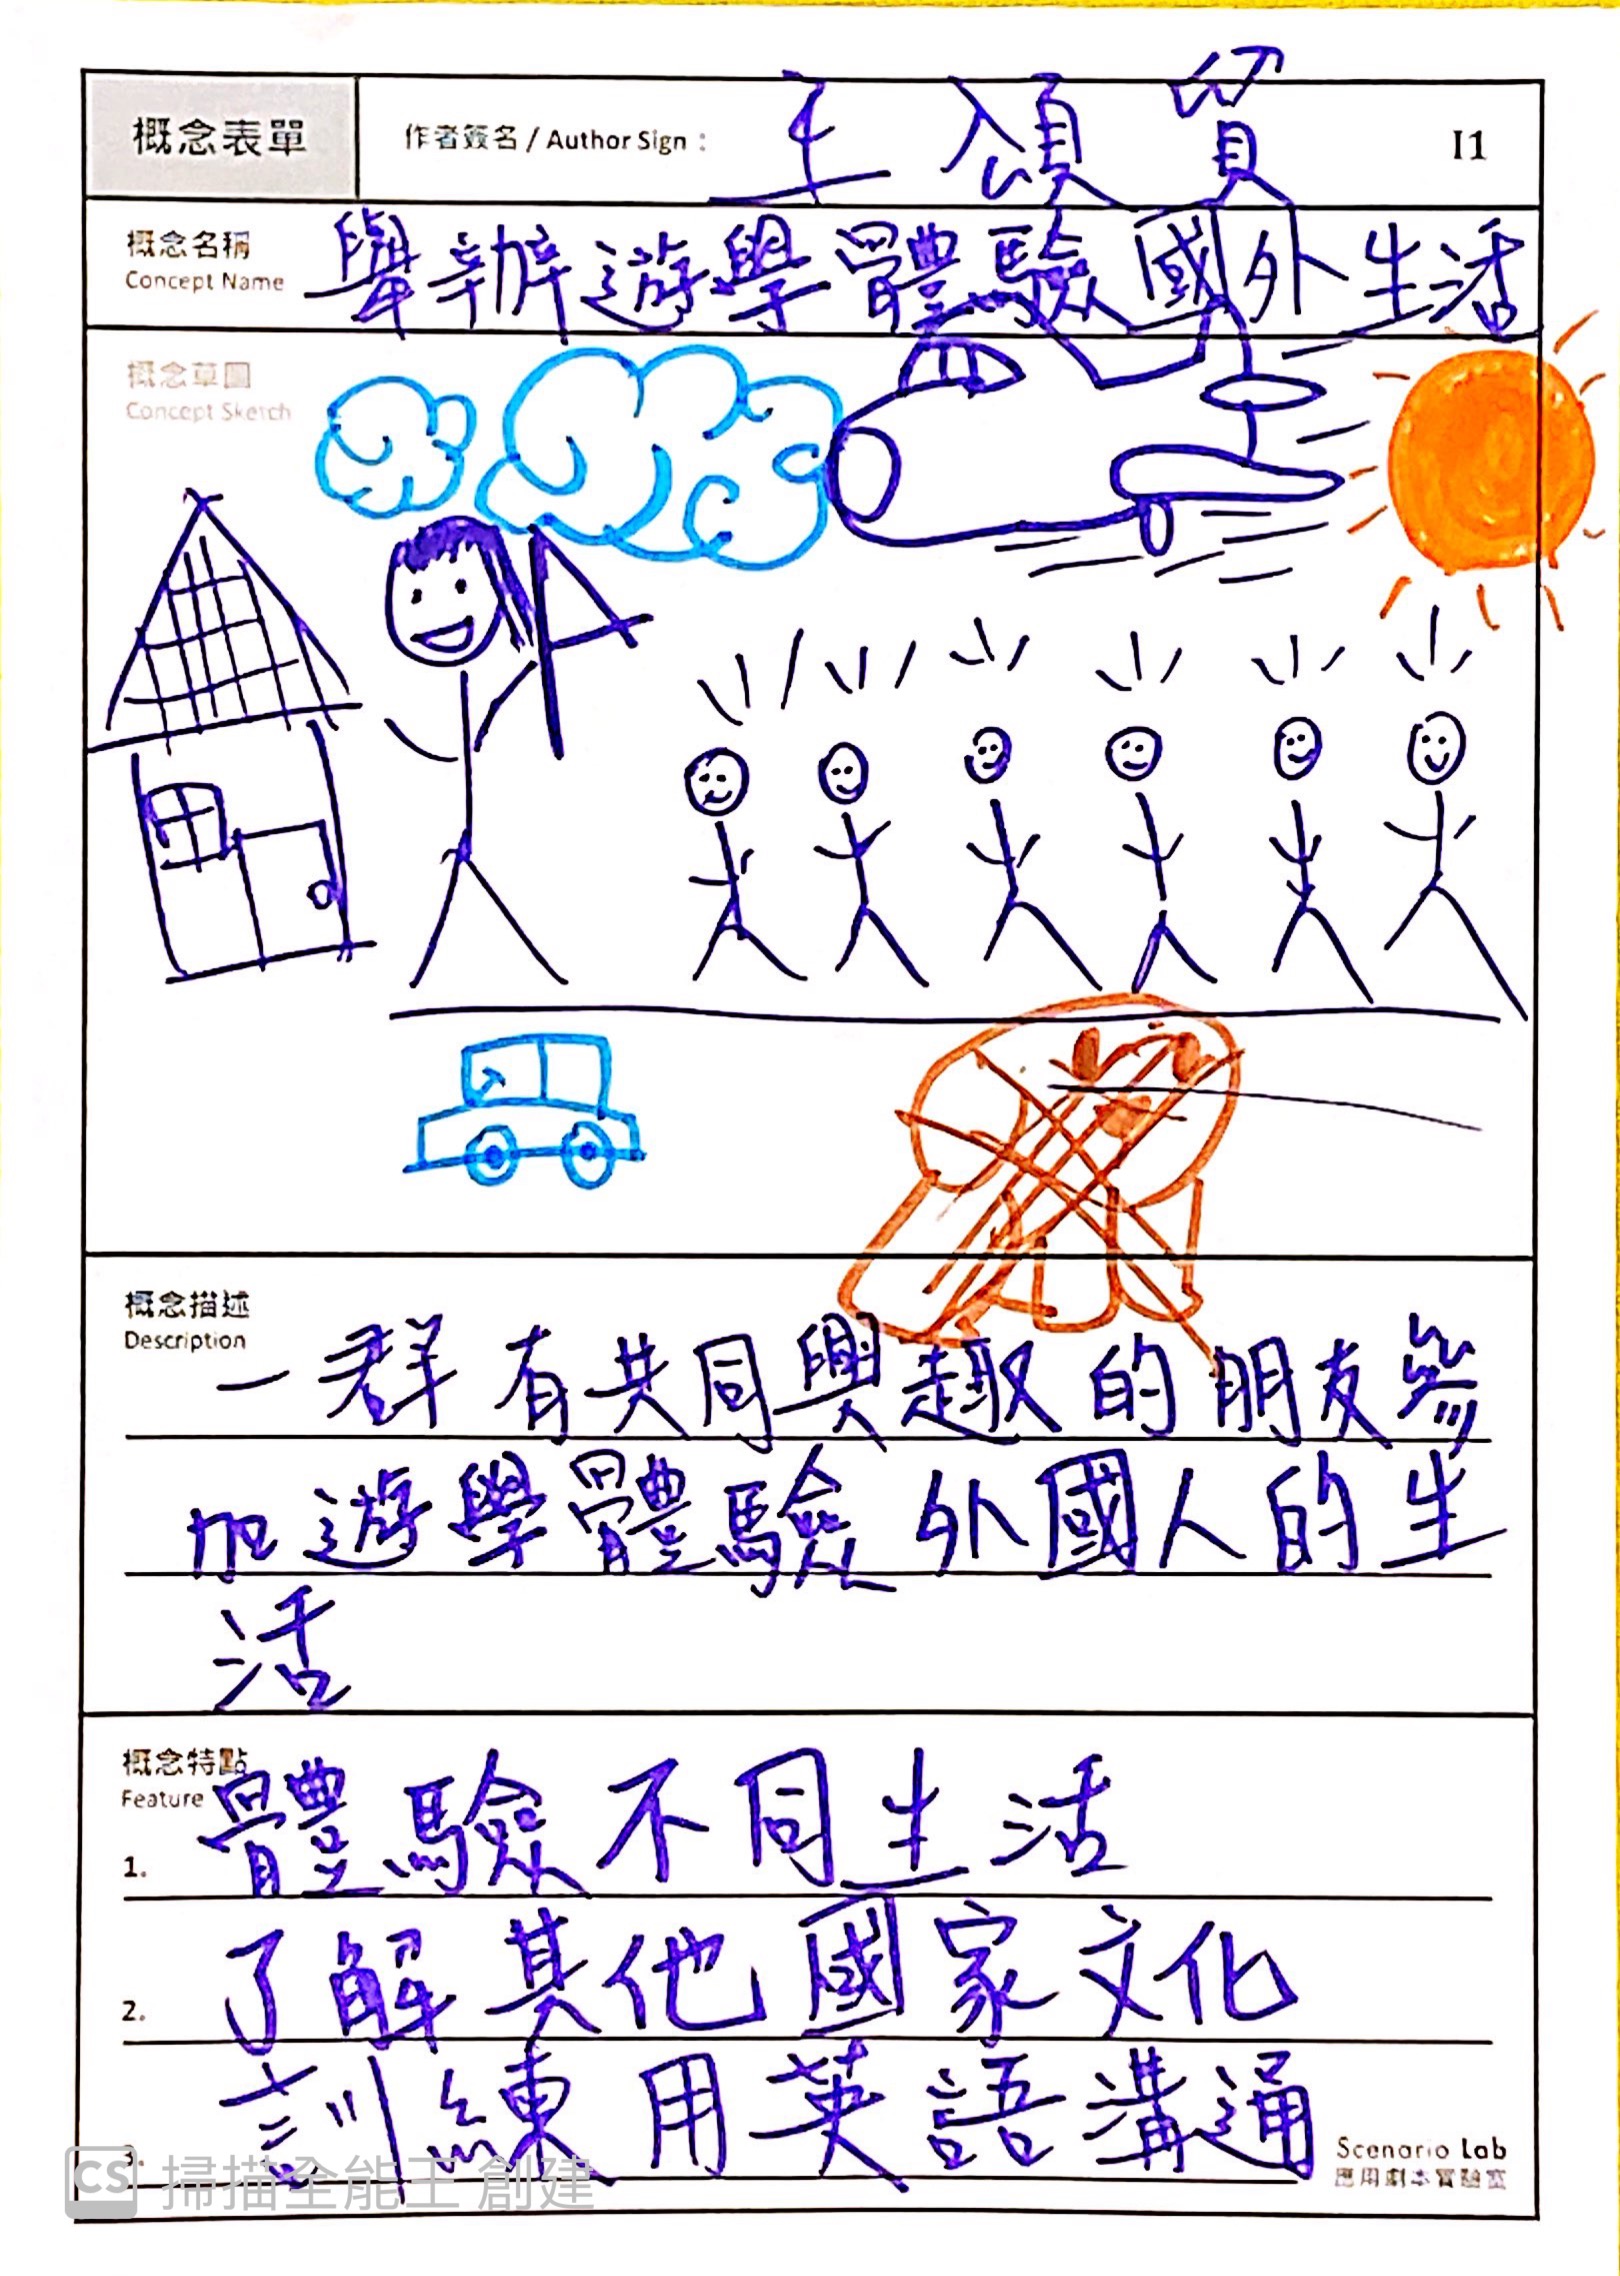 概念表單
作者簽名 / Author Sign：
王頌貿
I1
概念名稱
Concept Name
舉辦遊學體驗國外生活
概念草圖
Concept Sketch
概念描述
Description
一群有共同興趣的朋友參
加遊學體驗外國人的生
活
概念特點
Feature
1. 體驗不同生活
2. 了解其他國家文化
3. 訓練用英語溝通
Scenario Lab
應用劇本實驗室
CS 掃描全能王 創建